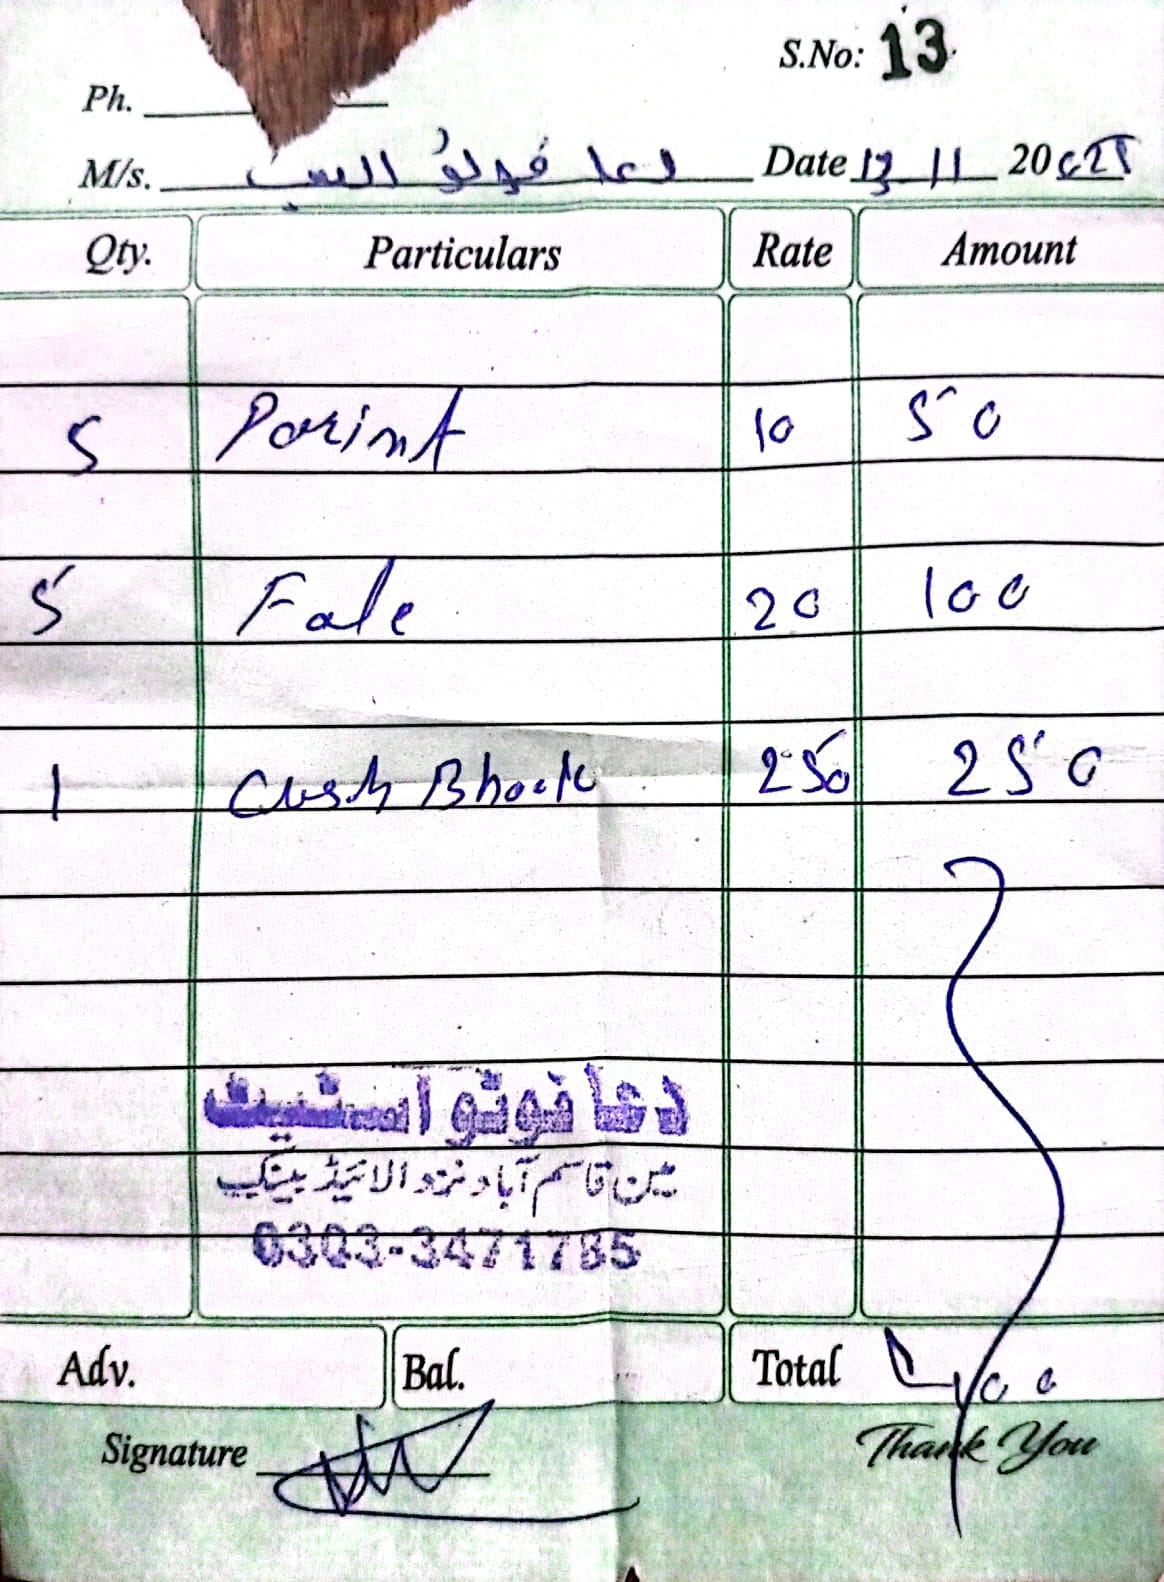 S.No: 13
Ph.
M/s. دعا فوٹو اسٹیٹ Date 13 11 2025
Qty. Particulars Rate Amount
5 Parint 10 50
5 Fale 20 100
1 Cash Bhook 250 250
دعا فوٹو اسٹیٹ
مین قاسم آباد نزد الائیڈ بینک
0303-3471785
Adv. Bal. Total 400
Signature Thank You